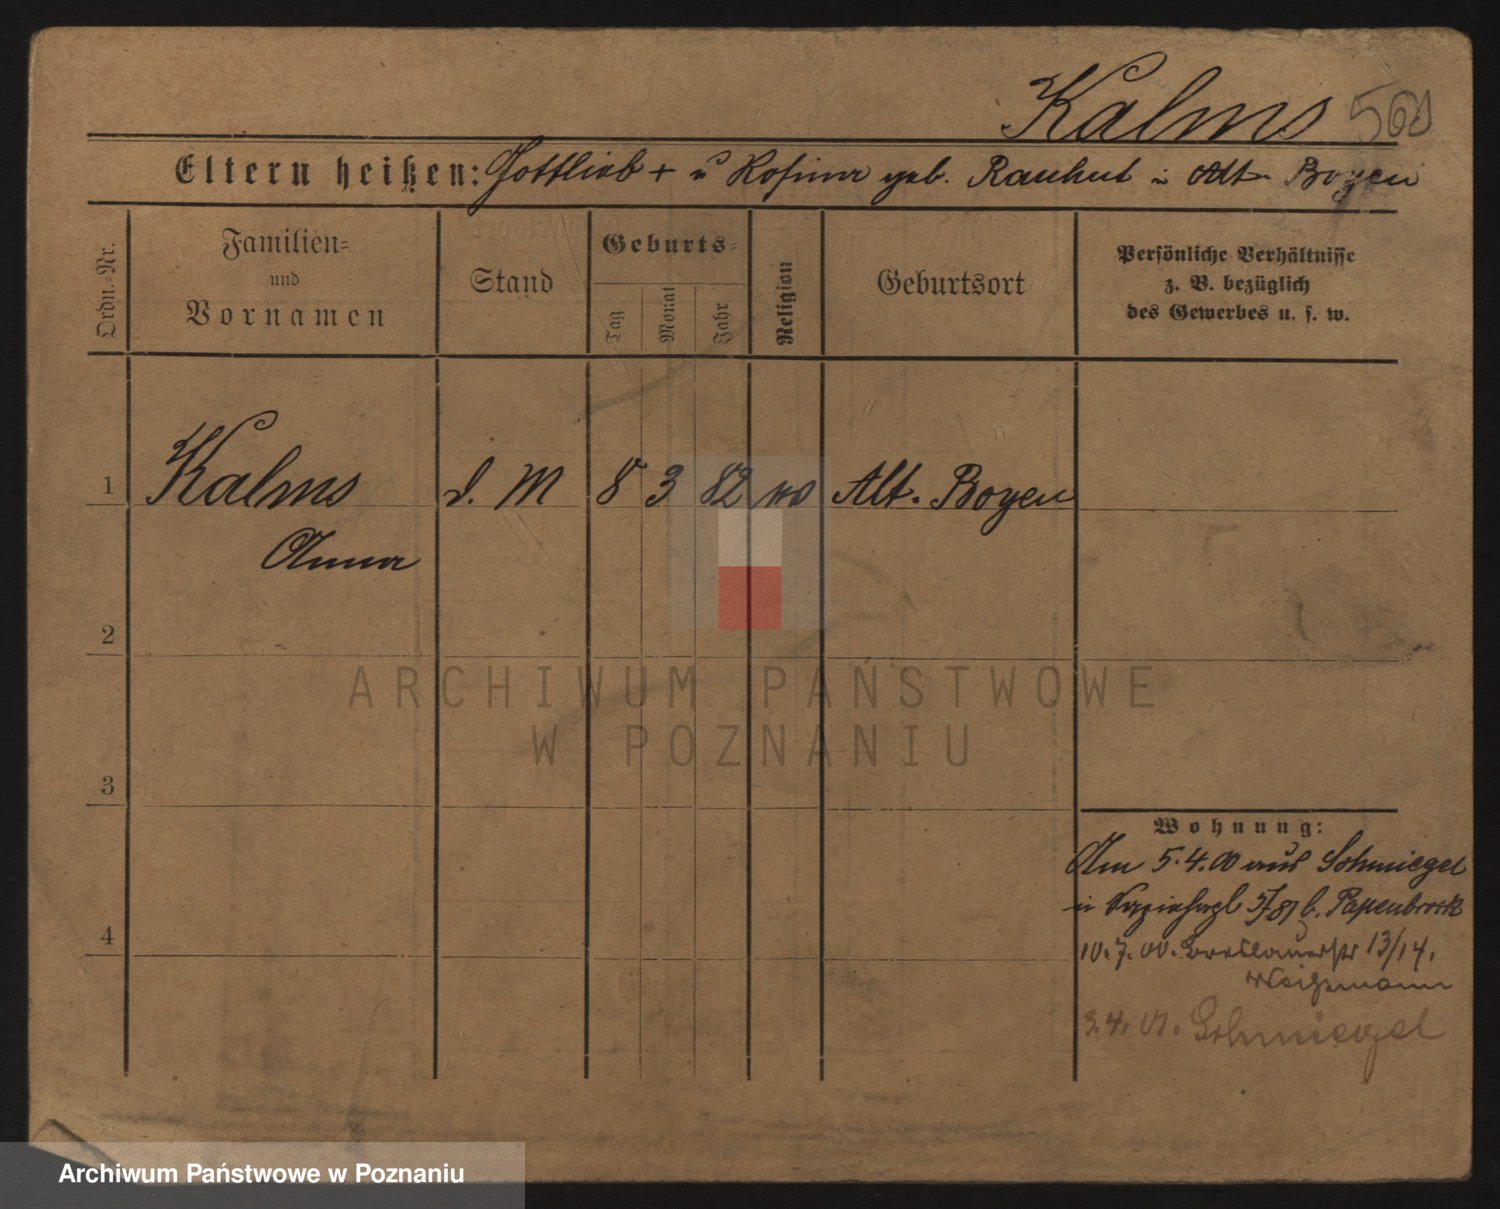 Kalms 560
Eltern heißen: Gottlieb + u Rosina geb. Rauhut in Alt Boyen
Ordn.-Nr.
Familien-
und
Vornamen
Stand
Geburts-
Tag
Monat
Jahr
Religion
Geburtsort
Persönliche Verhältnisse
z. B. bezüglich
des Gewerbes u. s. w.
1 Kalms d. M 8 3 82 Alt. Boyen
Anna
2
3
4
Wohnung:
Am 5.4.00 aus Schmiegel
b. Papenbrock
10.7.00. Breslauerstr 13/14.
Weissmann
3.4.01. Schmiegel
ARCHIWUM PAŃSTWOWE
W POZNANIU
Archiwum Państwowe w Poznaniu